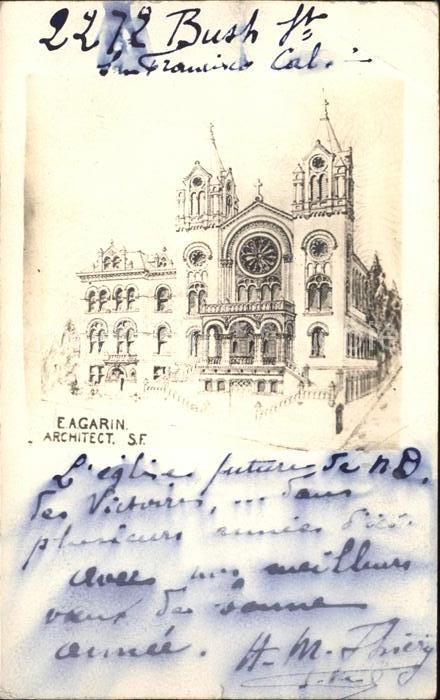 2272 Bush St
San Francisco Cal.
E.A.GARIN.
ARCHITECT. S.F.
L'église future de N.D.
des Victoires, ... dans
plusieurs années d'ici.
avec mes meilleurs
vœux de bonne
année. H. M. Thiéry